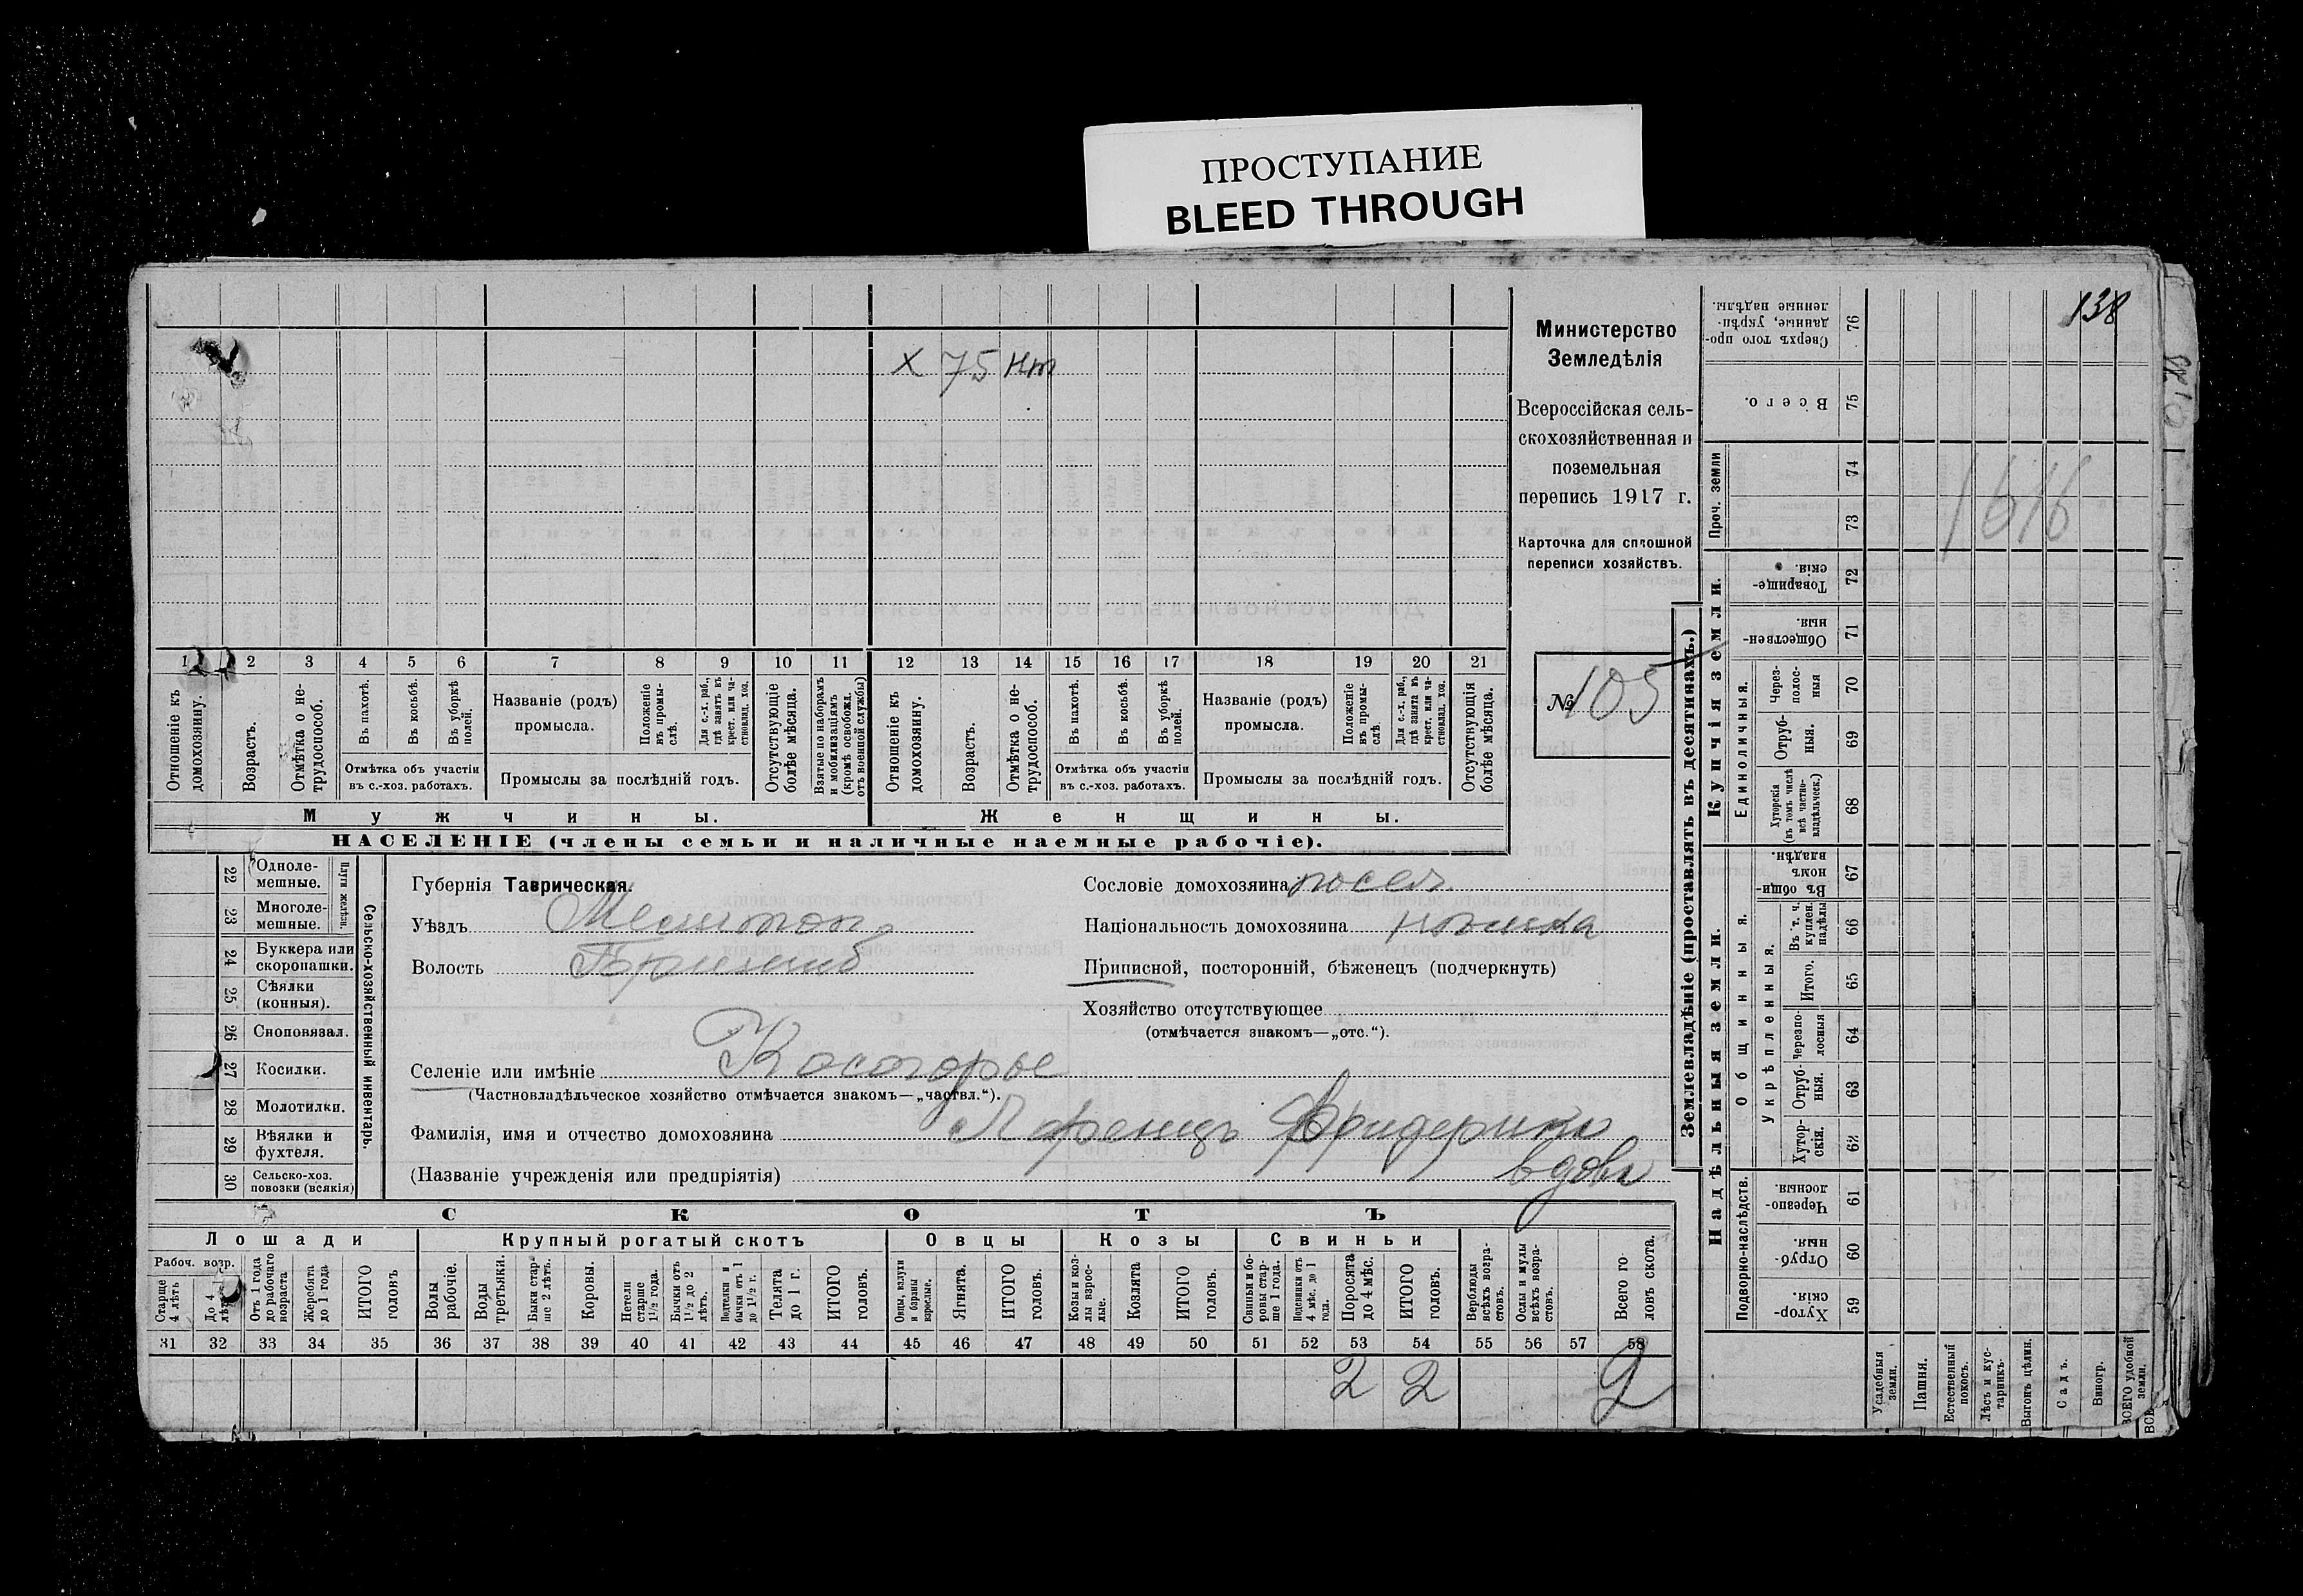 ПРОСТУПАНИЕ
BLEED THROUGH
138
х 75 нт
Министерство
Земледѣлія
Всероссійская сель-
скохозяйственная и
поземельная
перепись 1917 г.
Карточка для сплошной
переписи хозяйствъ.
№ 105
1 2 3 4 5 6 7 8 9 10 11 12 13 14 15 16 17 18 19 20 21
Отношеніе къ домохозяину.
Возрастъ.
Отмѣтка о не-трудоспособ.
Въ пахотѣ.
Въ косьбѣ.
Въ уборкѣ полей.
Отмѣтка объ участіи
въ с.-хоз. работахъ.
Названіе (родъ)
промысла.
Положеніе въ промы-слѣ.
Для с.-х. раб., гдѣ занятъ въ крест. или ча-стновлад. хоз.
Промыслы за послѣдній годъ.
Отсутствующіе болѣе мѣсяца.
Взятые по наборамъ и мобилизаціямъ (кромѣ освобожд. отъ военной службы)
Отношеніе къ домохозяину.
Возрастъ.
Отмѣтка о не-трудоспособ.
Въ пахотѣ.
Въ косьбѣ.
Въ уборкѣ полей.
Отмѣтка объ участіи
въ с.-хоз. работахъ.
Названіе (родъ)
промысла.
Положеніе въ промы-слѣ
Для с.-х. раб., гдѣ занята въ крест. или ча-стновлад. хоз.
Промыслы за послѣдній годъ.
Отсутствующія болѣе мѣсяца.
Мужчины.
Женщины.
НАСЕЛЕНІЕ (члены семьи и наличные наемные рабочіе).
22 Одноле-мешные.
23 Многоле-мешные.
Плуги желѣзн.
24 Буккера или скоропашки.
25 Сѣялки (конныя).
26 Сноповязал.
27 Косилки.
28 Молотилки.
29 Вѣялки и фухтеля.
30 Сельско-хоз. повозки (всякія)
Сельско-хозяйственный инвентарь.
Губернія Таврическая.
Уѣздъ Мелитоп
Волость Пришиб
Селеніе или имѣніе Косогорье
(Частновладѣльческое хозяйство отмѣчается знакомъ—„частвл.“).
Фамилія, имя и отчество домохозяина Лоренцъ Фридерика
(Названіе учрежденія или предпріятія) вдова
Сословіе домохозяина посел
Національность домохозяина нѣмка
Приписной, посторонній, бѣженецъ (подчеркнуть)
Хозяйство отсутствующее
(отмѣчается знакомъ—„отс.“).
СКОТЪ
Лошади
Крупный рогатый скотъ
Овцы
Козы
Свиньи
Рабоч. возр.
Старше 4 лѣтъ
До 4 лѣтъ
Отъ 1 года до рабочаго возраста
Жеребята до 1 года
ИТОГО головъ
Волы рабочіе.
Волы третьяки.
Быки стар-ше 2 лѣтъ.
Коровы.
Нетели старше 1½ года.
Бычки отъ 1½ до 2 лѣтъ.
Подтелки и бычки отъ 1 до 1½ г.
Телята до 1 г.
ИТОГО головъ.
Овцы, валухи и бараны взрослые.
Ягнята.
ИТОГО головъ.
Козы и коз-лы взрос-лые.
Козлята
ИТОГО головъ.
Свиньи и бо-ровы стар-ше 1 года.
Подсвинки отъ 4 мѣс. до 1 года.
Поросята до 4 мѣс.
ИТОГО головъ.
Верблюды всѣхъ возра-стовъ.
Ослы и мулы всѣхъ возра-стовъ.
Всего го-ловъ скота.
31 32 33 34 35 36 37 38 39 40 41 42 43 44 45 46 47 48 49 50 51 52 53 54 55 56 57 58
2 2 2
Землевладѣніе (проставлять въ десятинахъ.)
Надѣльныя земли.
Купчія земли.
Проч. земли
Подворно-наслѣдств.
Общинныя.
Укрѣпленныя.
Единоличныя.
76 Сверхъ того про-данные, укрѣп-ленные надѣлы.
75 Всего.
74
73
72 Товарище-скія.
71 Обществен-ныя.
70 Через-полос-ныя
69 Отруб-ныя.
68 Хуторскія (въ томъ числѣ всѣ частно-владѣльческ.)
67 Въ общин-номъ владѣн.
66 Въ т. ч. куплен. надѣлы
65 Итого.
64 Черезпо-лосныя
63 Отруб-ныя.
62 Хутор-скія.
61 Черезпо-лосныя.
60 Отруб-ныя.
59 Хутор-скія.
1616
Усадебныя земли.
Пашня.
Естественный покосъ.
Лѣсъ и кус-тарникъ.
Выгонъ цѣлин.
Садъ.
Виногр.
ВСЕГО удобной земли.